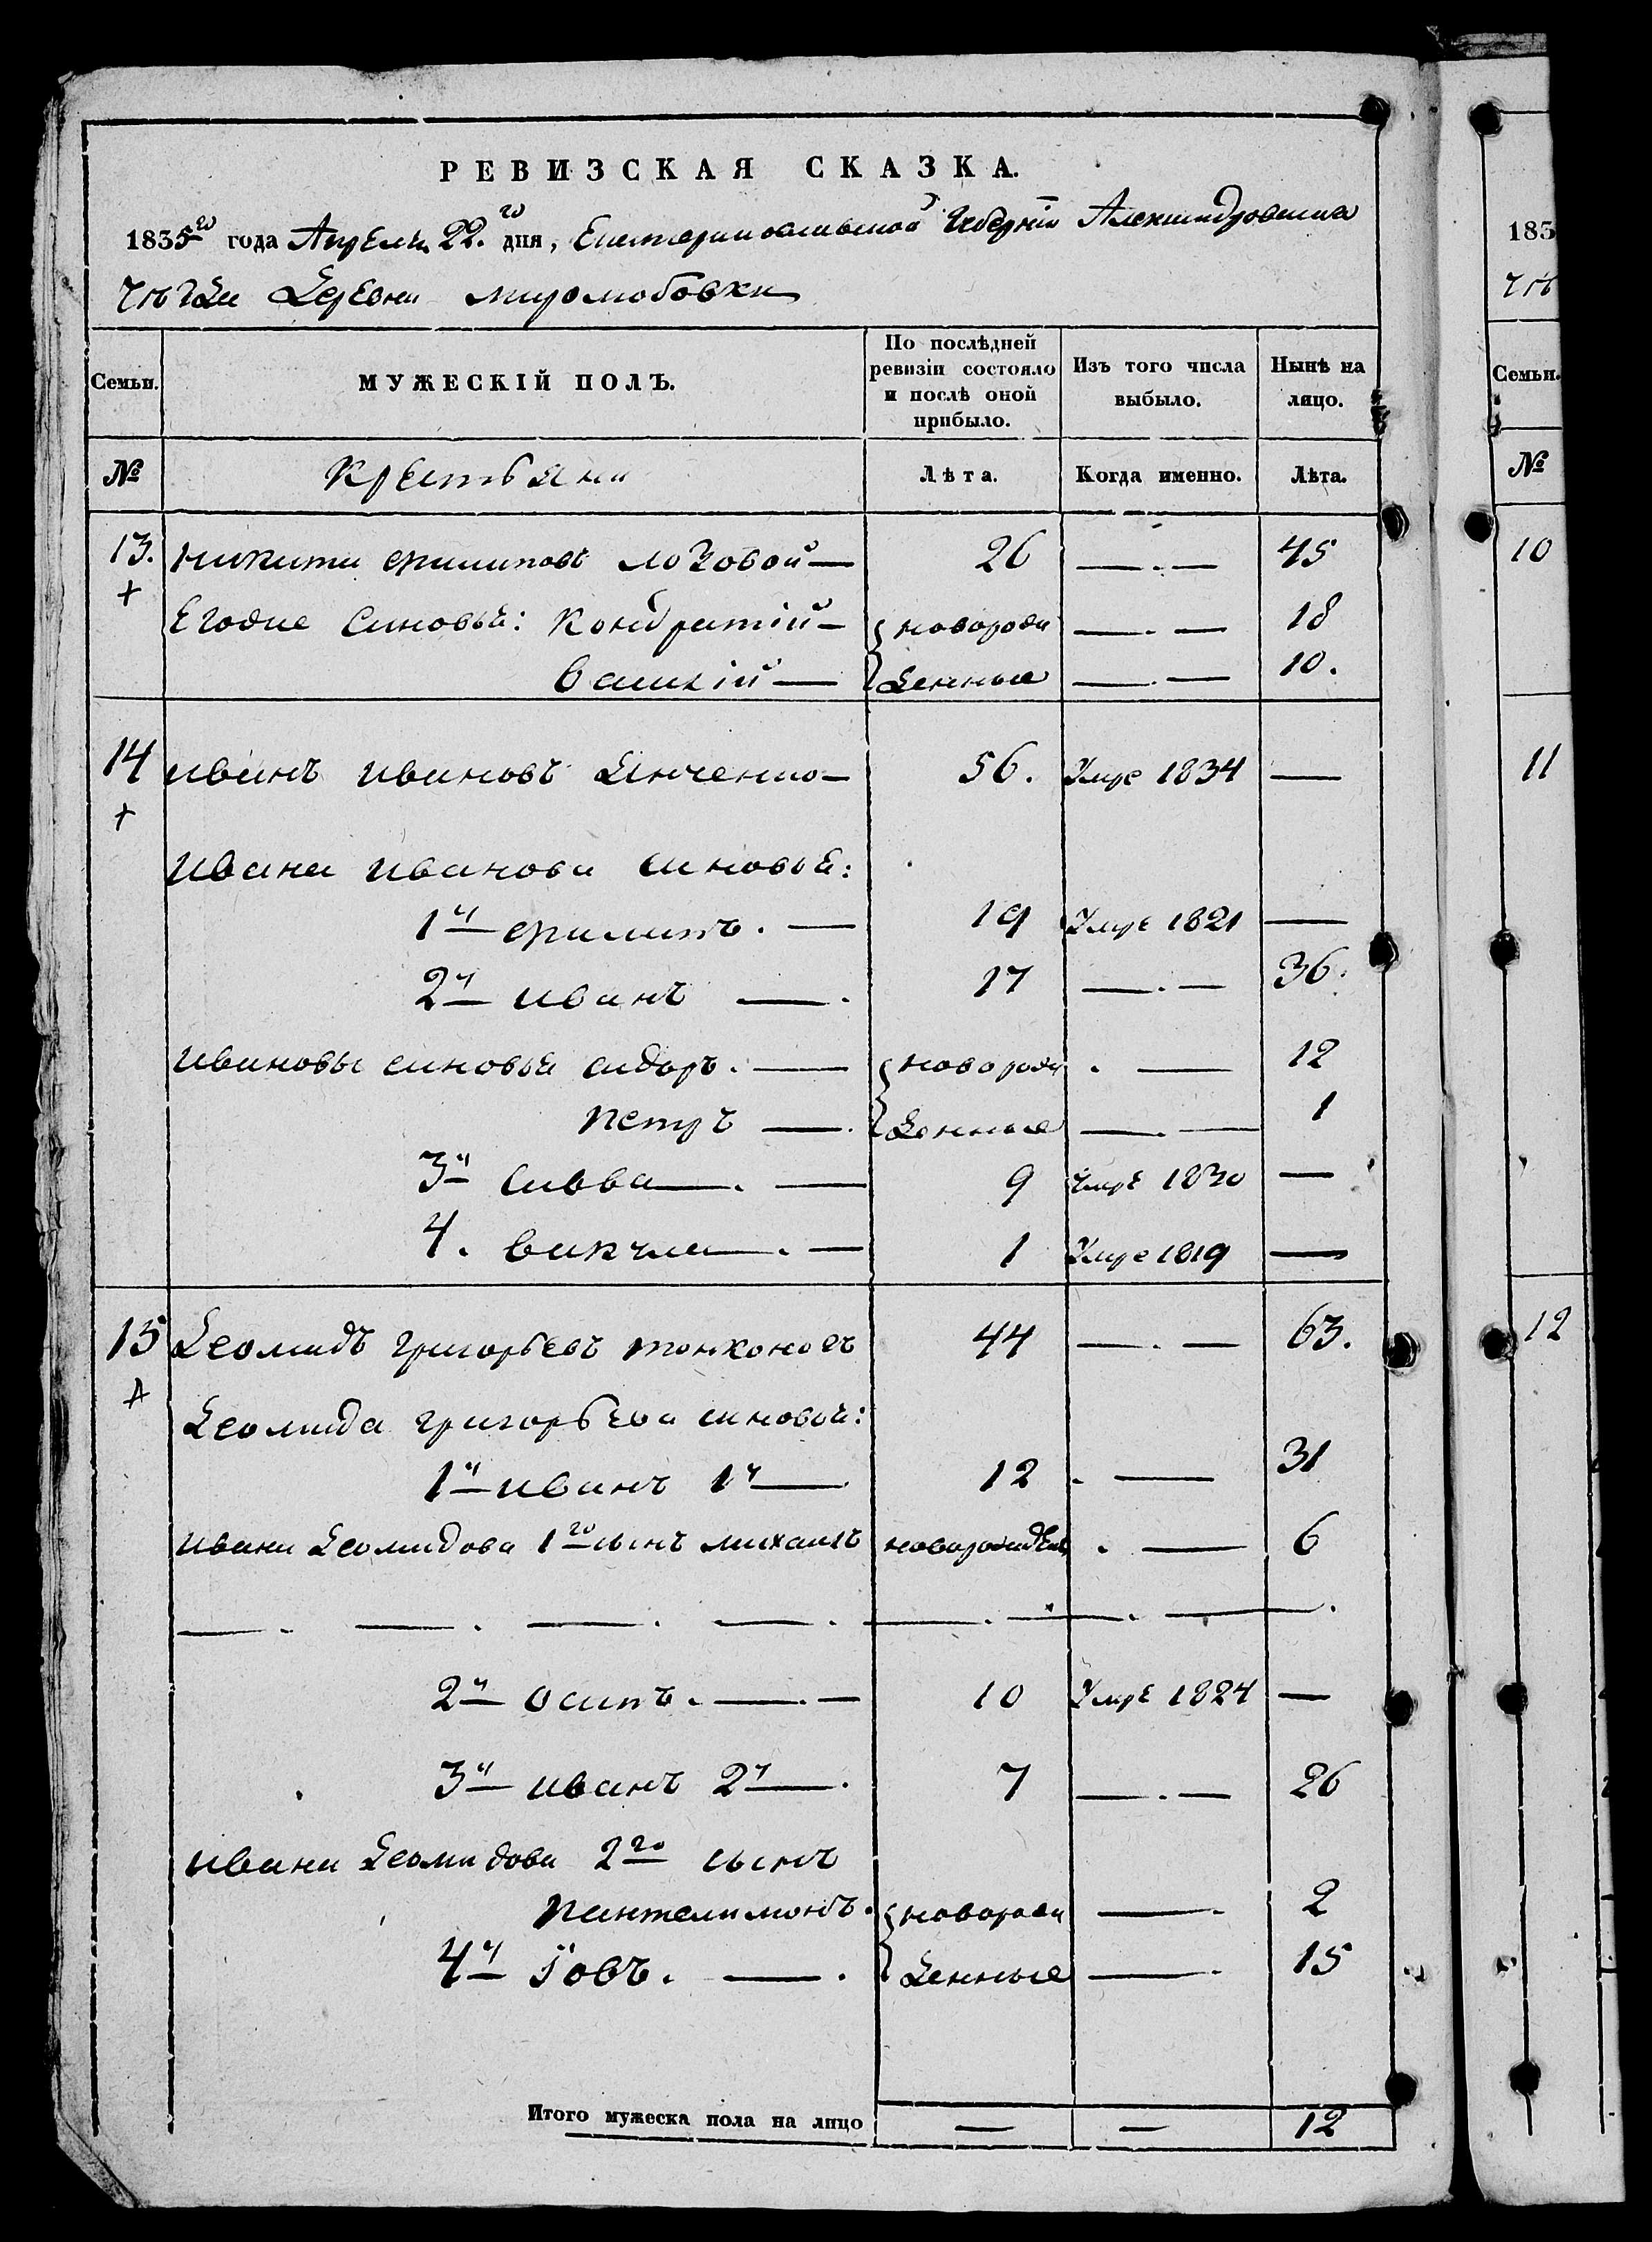 РЕВИЗСКАЯ СКАЗКА.
1835го года Апреля 22.го дня, Екатеринославской Губерніи Александровскаго
уѣзда Деревни Миролюбовки
Семьи. МУЖЕСКІЙ ПОЛЪ. По послѣдней ревизіи состояло и послѣ оной прибыло. Изъ того числа выбыло. Нынѣ на лицо.
№ Крестьяни Лѣта. Когда именно. Лѣта.
13. Никита Филиповъ Лозовой — 26 — . — 45
Егоже синовья: Кондратій — новорож — . — 18
Василій — денные — . — 10.
14 Иванъ Ивановъ Янченко — 56. Умре 1834 —
Ивана Иванова синовья:
1й Филипъ. — 19 Умре 1821 —
2й Иванъ — . 17 — . — 36.
Ивановы синовья Сидоръ. — новорож . — 12
Петръ — . денные — . — 1
3й Савва — . — 9 Умре 1830 —
4. Вакула — . — 1 Умре 1819 —
15 Деомидъ Григорьевъ Тонконогъ 44 — . — 63.
Деомида Григорьева синовья:
1й Иванъ 1й — 12 . — 31
Ивана Деомидова 1го сынъ Михаилъ новорожден . — 6
— . — . — . — . — . — . — .
2й Осипъ. — . — 10 Умре 1824 —
3й Иванъ 2й — . 7 — . — 26
Ивана Деомидова 2го сынъ
Пантелимонъ. новорож — . 2
4й Іовъ. — . денные — . 15
Итого мужеска пола на лицо — — 12
183
Семьи.
№
10
11
12